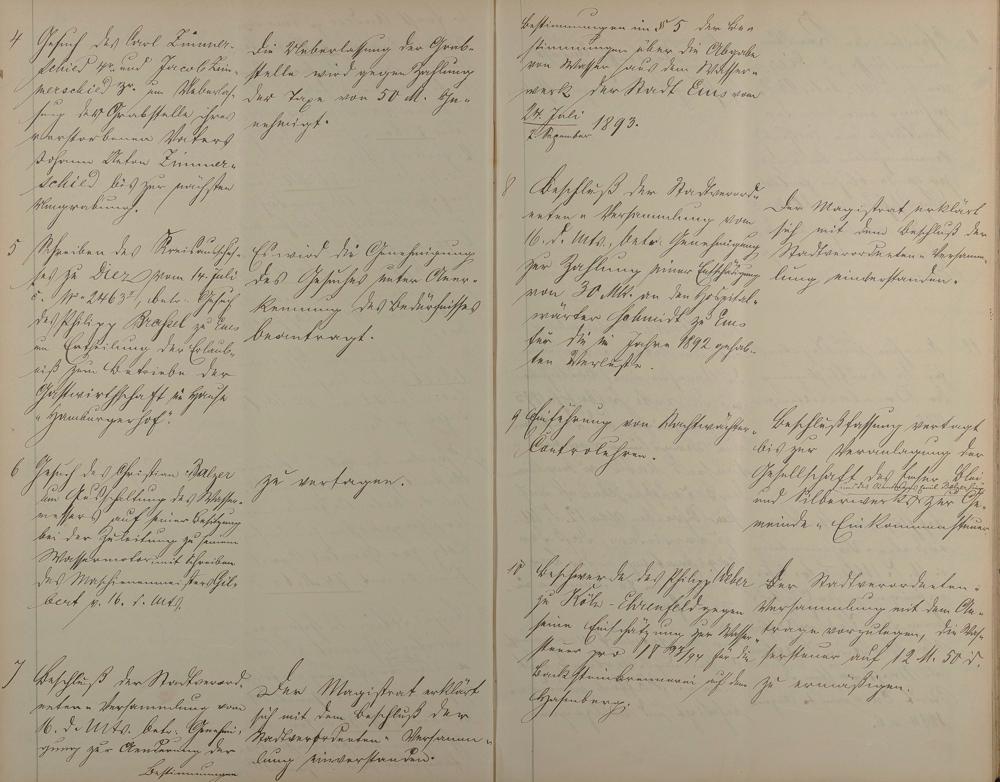 4
Gesuch des Carl Zimmer-
schied 4r. und Jacob Zim-
merschied 3r. um Ueberlas-
sung der Grabstelle ihres
verstorbenen Vaters
Johann Anton Zimmer-
schied bis zur nächsten
Umgrabung.
Die Ueberlassung der Grab-
stelle wird gegen Zahlung
der Taxe von 50 M. Ge-
nehmigt.
5
Schreiben des Kreisausschus-
ses zu Diez vom 14. Juli
No 2463, betr. Gesuch
des Philipp zu Ems
um Ertheilung der Erlaub-
niß zum Betriebe der
Gastwirthschaft im Hause
"Hamburgerhof".
Es wird die Genehmigung
des Gesuches unter Aner-
kennung des Bedürfnisses
beantragt.
6
Gesuch des Christian Balzer
um Ausschaltung des Wasser-
messers auf seiner Besitzung
bei der Zuleitung zu seinem
Wassermotor, mit Schreiben
des Maschinenmeisters
v. 16. d. Mts.
zu vertagen.
7
Beschluß der Stadtverord-
neten-Versammlung vom
16. d. Mts. betr. Genehmi-
gung zur Aenderung der
Bestimmungen
Der Magistrat erklärt
sich mit dem Beschluß der
Stadtverordneten-Versamm-
lung einverstanden.
Bestimmungen in § 5 der Be-
stimmungen über die Abgabe
von Wasser aus dem Wasser-
werk der Stadt Ems vom
24. Juli
2. September 1893.
8
Beschluß der Stadtverord-
neten-Versammlung vom
16. d. Mts., betr. Genehmigung
zur Zahlung einer Entschädigung
von 30 Mk. an den Hospital-
wärter Schmidt zu Ems
für die im Jahre 1892 gehab-
ten Verluste.
Der Magistrat erklärt
sich mit dem Beschluß der
Stadtverordneten-Versamm-
lung einverstanden.
9
Einführung von Nachtwächter-
Controluhren.
Beschlußfassung vertagt
bis zur Veranlagung der
Gesellschaft des Emser Blei
und Silberwerks zur Ge-
meinde-Einkommensteuer
10
Beschwerde des Philipp Weber
zu Köln-Ehrenfeld gegen
seine Einschätzung zur Wasser-
steuer pro 1893/94 für die
Backsteinbrennerei auf dem
Hasenberg.
Der Stadtverordneten-
Versammlung mit dem An-
trage vorzulegen, die Was-
sersteuer auf 12 M. 50 d.
zu ermäßigen.